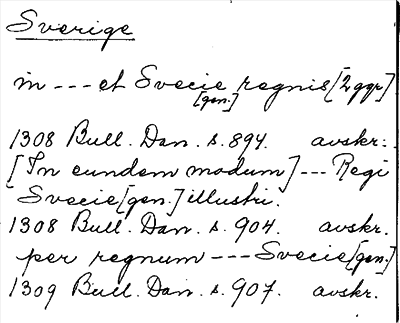 Sverige
in --- et Svecie regnis [2ggr]
[gen.]
1308 Bull. Dan. s. 894. avskr.
[In eundem modum] --- Regi
Svecie [gen.] illustri.
1308 Bull. Dan. s. 904. avskr.
per regnum --- Svecie [gen.]
1309 Bull. Dan. s. 907. avskr.